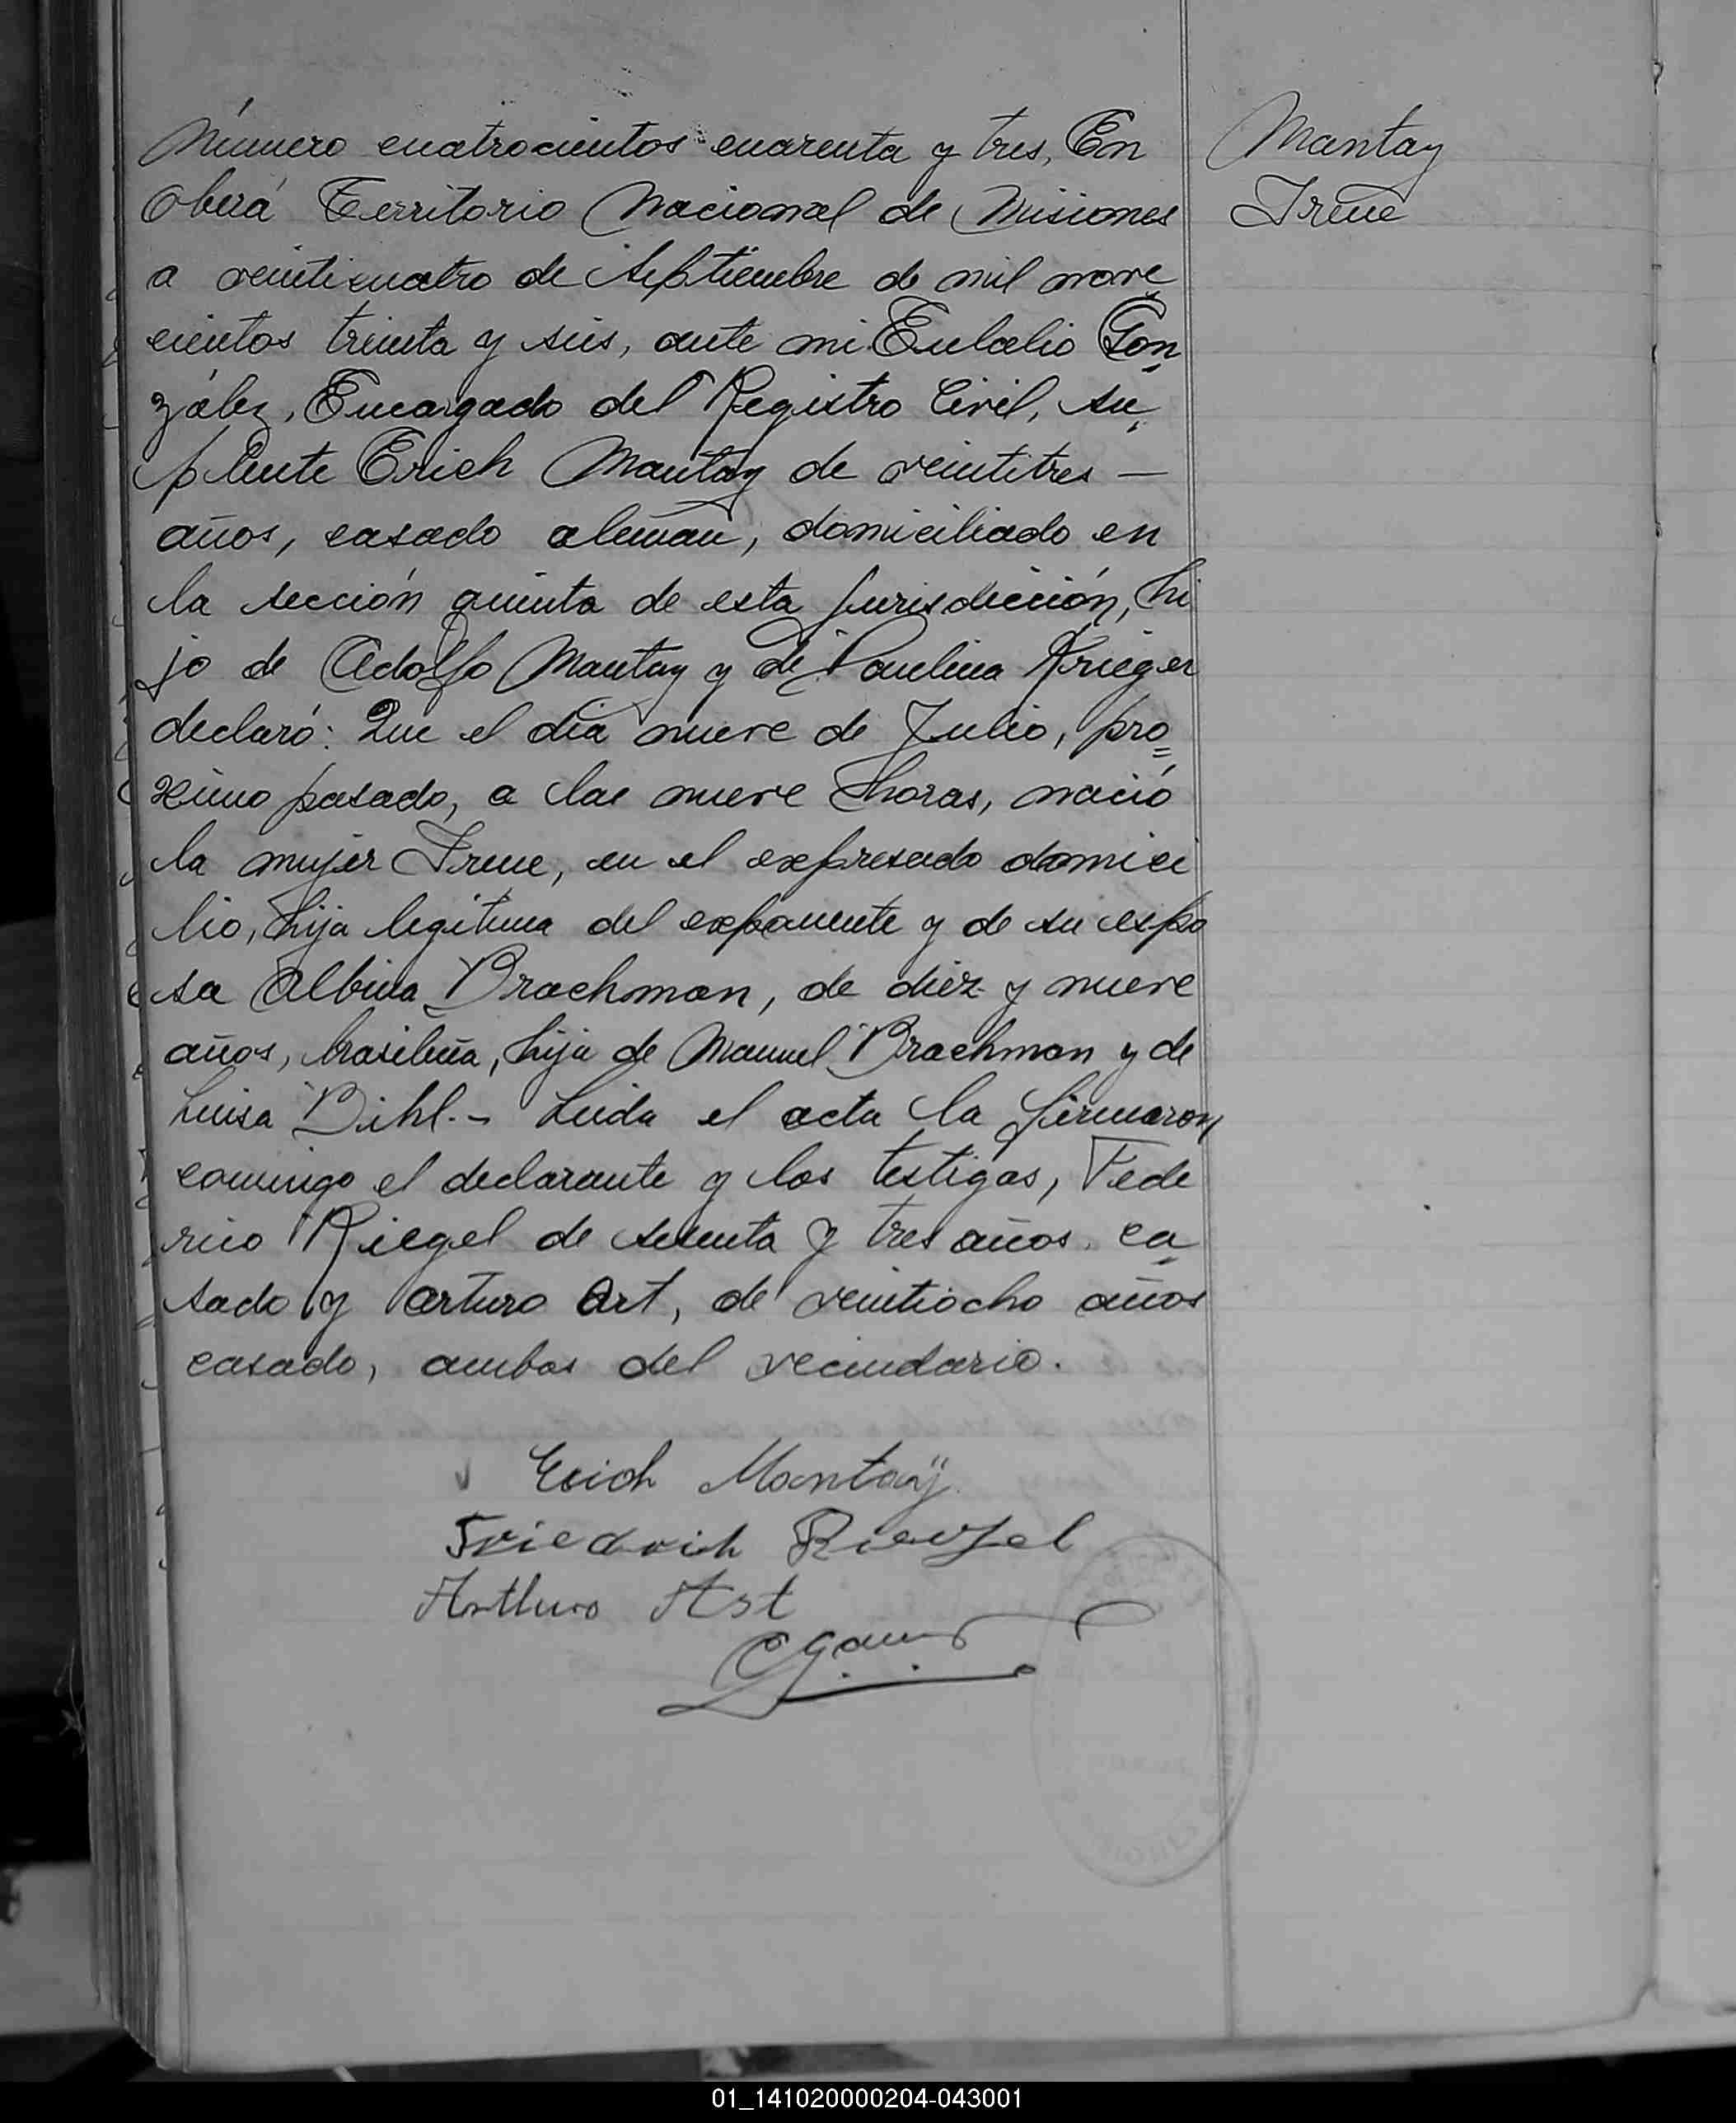 Número cuatrocientos cuarenta y tres, En
Oberá Territorio Nacional de Misiones
a veinticuatro de Septiembre de mil nove
cientos treinta y seis, ante mi Eulalio Gon
zález, Encargado del Registro Civil, su
plente Erich Mantay de veintitres —
años, casado alemán, domiciliado en
la sección quinta de esta jurisdicción, hi
jo de Adolfo Mantay y de Paulina Krieger
declaró: Que el día nueve de Julio, pró=
ximo pasado, a las nueve horas, nació
la mujer Irene, en el expresado domici
lio, hija legitima del exponente y de su espo
sa Albina Brachman, de diez y nueve
años, brasileña, hija de Manuel Brachman y de
Luisa Dihl.- Leida el acta la firmaron
conmigo el declarante y los testigos, Fede
rico Riegel de sesenta y tres años, ca
sado y Arturo Art, de veintiocho años
casado, ambos del vecindario.
Mantay
Irene
Erich Mantaÿ
Friedrich Riegel
Arthuro Ast
01_141020000204-043001